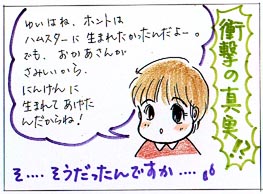 衝撃の真実!?
ゆいはね、ホントは
ハムスターに生まれたかったんだよー。
でも、おかあさんが
さみしいから、
にんげんに
生まれてあげた
んだからね!
そ....そうだったんですか....